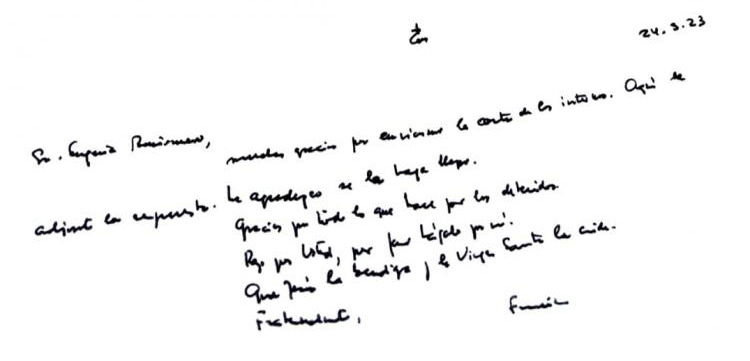 24.3.23
Sr. Eugenio
muchas gracias por enviarme la carta de los internos. Aquí le
adjunto la respuesta. Le agradezco se la haga llegar.
Gracias por todo lo que hace por los detenidos
Rezo por Usted, por favor hágalo por mí.
Que Jesús la bendiga y la Virgen Santa la cuide.
Fraternalmente,